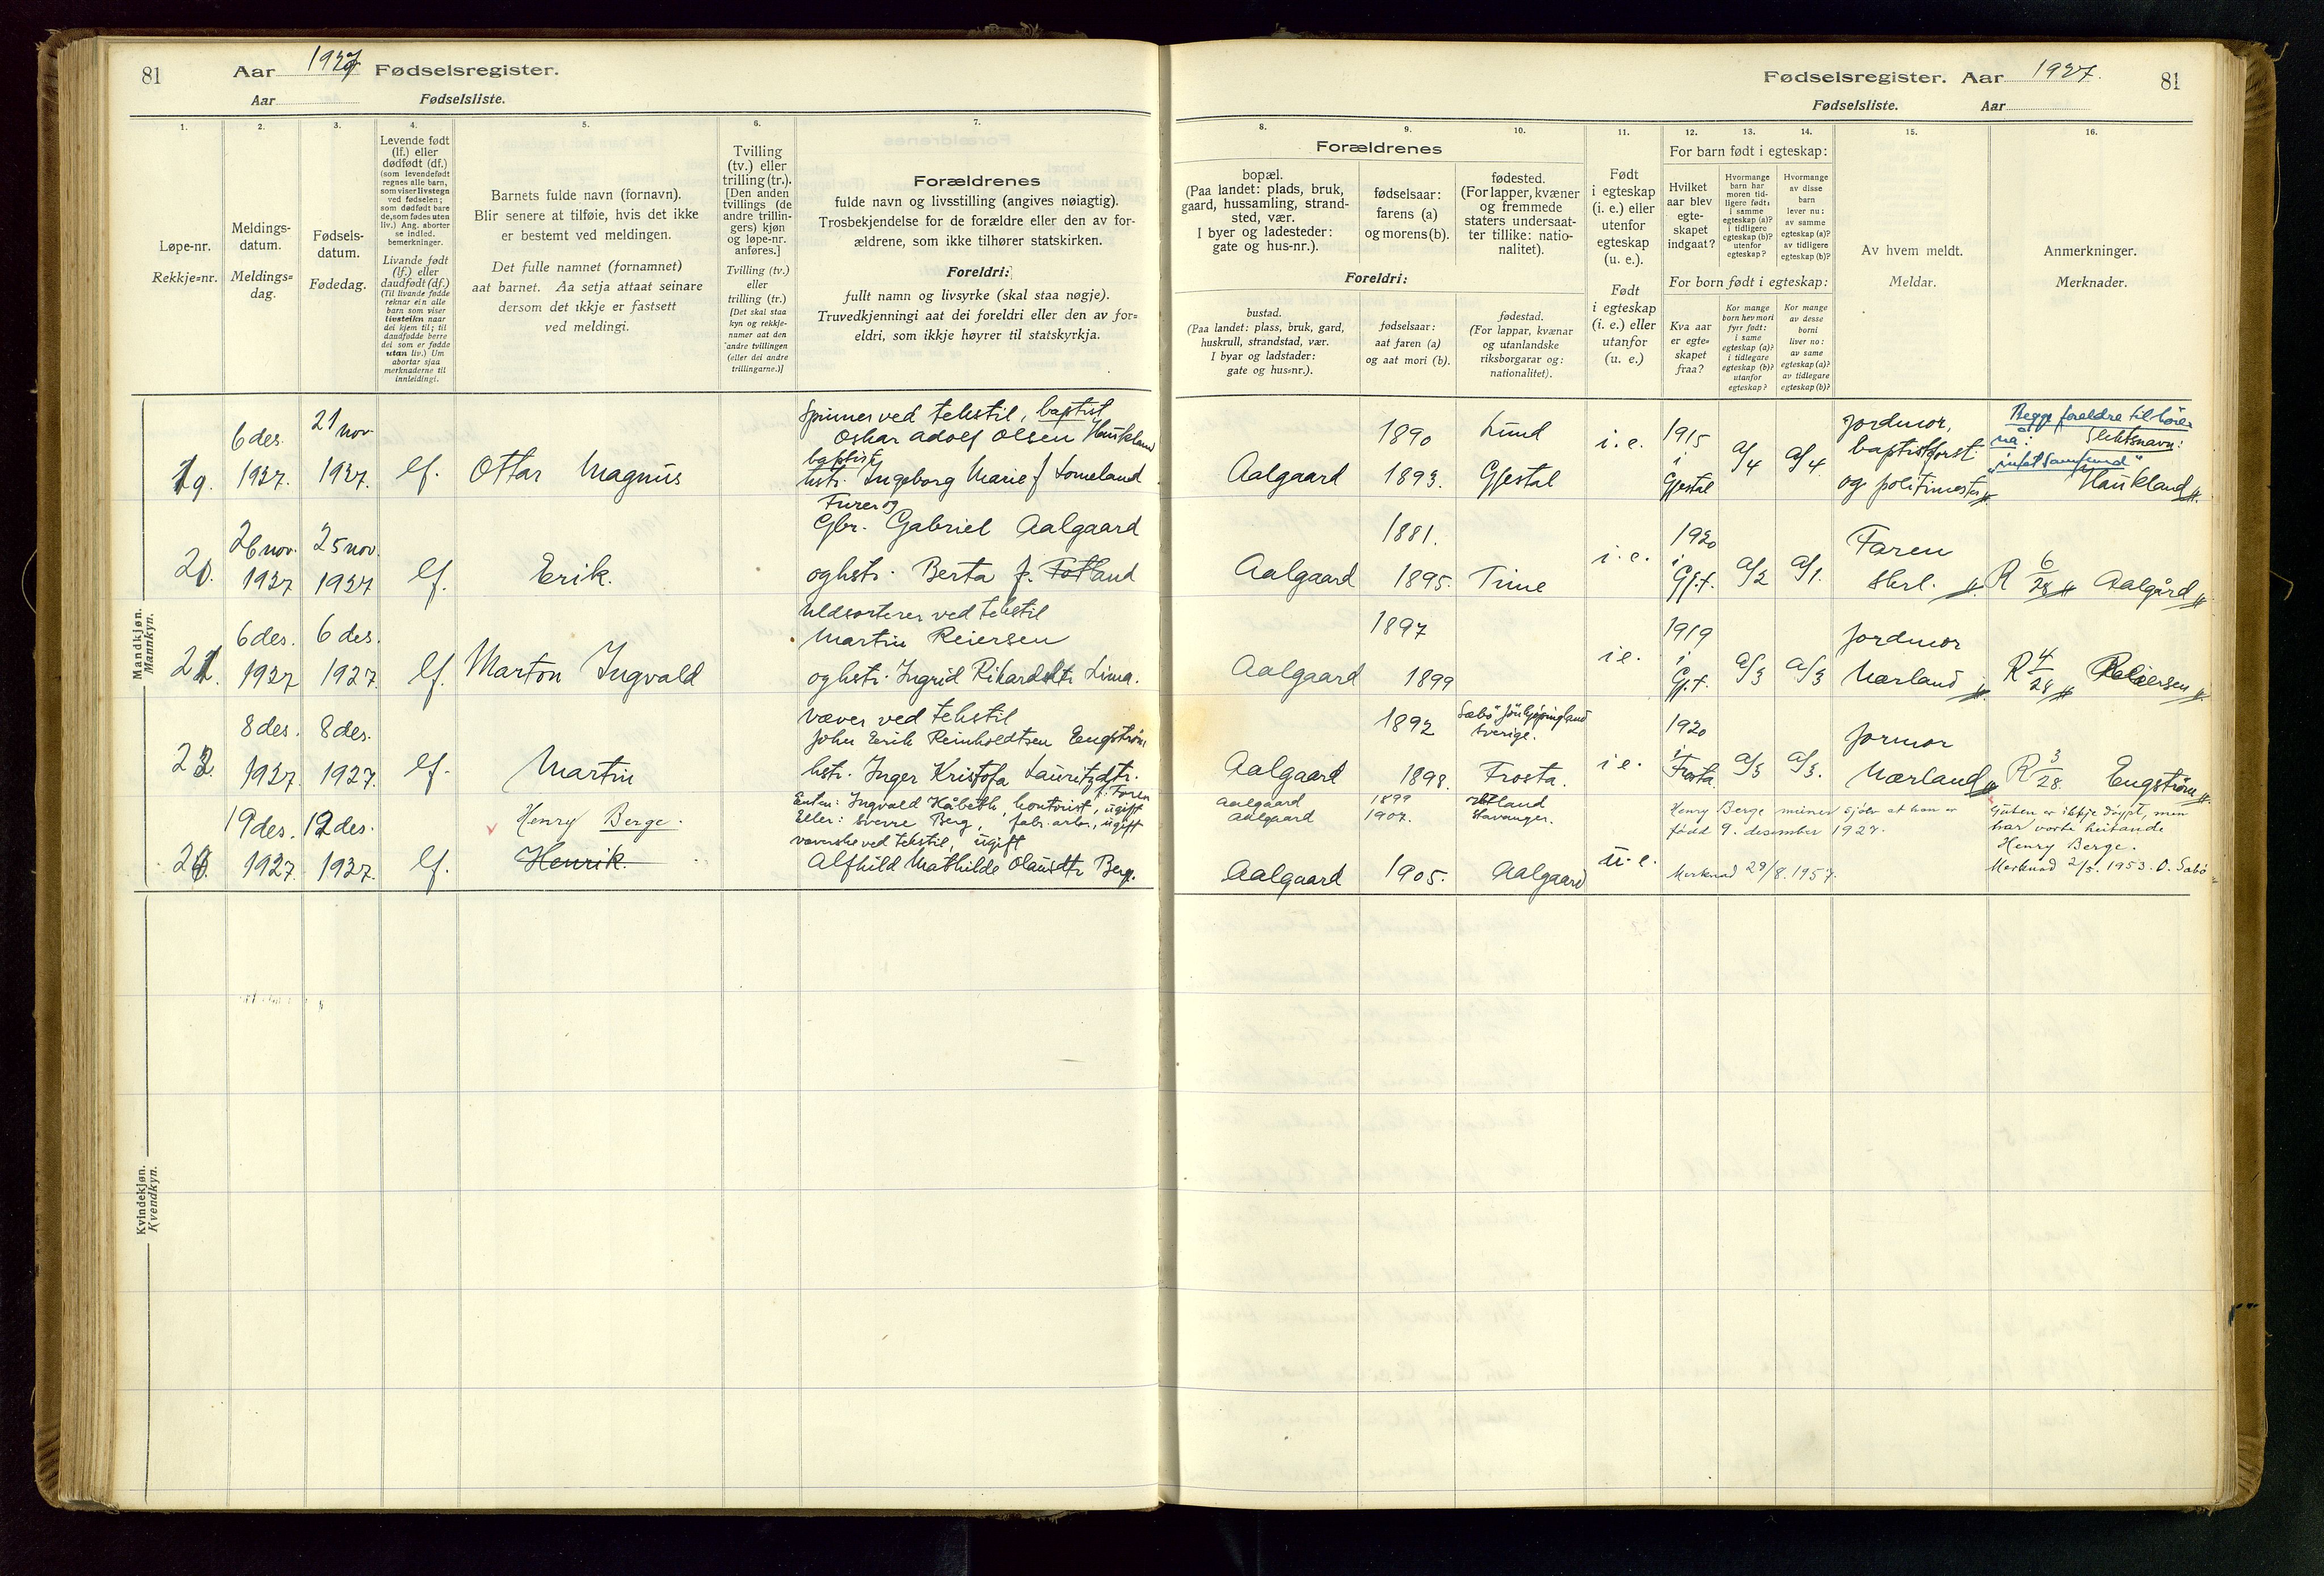 81 Aar 1927 Fødselsregister.
Aar Fødselsliste.
Fødselsregister. Aar 1927. 81
Fødselsliste. Aar
1.
Løpe-nr.
Rekkje-nr.
2.
Meldings-
datum.
Meldings-
dag.
3.
Fødsels-
datum.
Fødedag.
4.
Levende født
(lf.) eller
dødfødt (df.)
(som levendefødt
regnes alle barn,
som viser livstegn
ved fødselen;
som dødfødt bare
de, som fødes uten
liv.) Ang. aborter
se indled.
bemerkninger.
Livande født
(lf.) eller
daudfødt (df.)
(Til livande fødde
reknar ein alle
barn som viser
livsteikn naar
dei kjem til; til
daudfødde berre
dei som er fødde
utan liv.) Um
abortar sjaa
merknaderne til
innleidingi.
5.
Barnets fulde navn (fornavn).
Blir senere at tilføie, hvis det ikke
er bestemt ved meldingen.
Det fulle namnet (fornamnet)
aat barnet. Aa setja attaat seinare
dersom det ikkje er fastsett
ved meldingi.
6.
Tvilling
(tv.) eller
trilling (tr.).
[Den anden
tvillings (de
andre trillin-
gers) kjøn
og løpe-nr.
anføres.]
Tvilling (tv.)
eller
trilling (tr.)
[Det skal staa
kyn og rekkje-
numer aat den
andre tvillingen
(eller dei andre
trillingarne.)]
7.
Forældrenes
fulde navn og livsstilling (angives nøiagtig).
Trosbekjendelse for de forældre eller den av for-
ældrene, som ikke tilhører statskirken.
Foreldri:
fullt namn og livsyrke (skal staa nøgje).
Truvedkjenningi aat dei foreldri eller den av for-
eldri, som ikkje høyrer til statskyrkja.
Forældrenes
8.
bopæl.
(Paa landet: plads, bruk,
gaard, hussamling, strand-
sted, vær.
I byer og ladesteder:
gate og hus-nr.).
9.
fødselsaar:
farens (a)
og morens (b).
10.
fødested.
(For lapper, kvæner
og fremmede
staters undersaat-
ter tillike: natio-
nalitet).
Foreldri:
bustad.
(Paa landet: plass, bruk, gard,
huskrull, strandstad, vær.
I byar og ladstader:
gate og hus-nr.).
fødselsaar:
aat faren (a)
og aat mori (b).
fødestad.
(For lappar, kvænar
og utanlandske
riksborgarar og:
nationalitet).
11.
Født
i egteskap
(i. e.) eller
utenfor
egteskap
(u. e.).
Født
i egteskap
(i. e.) eller
utanfor
(u. e.)
For barn født i egteskap:
12.
Hvilket
aar blev
egte-
skapet
indgaat?
13.
Hvormange
barn har
moren tid-
ligere født:
i samme
egteskap (a)?
i tidligere
egteskap (b)?
utenfor
egteskap?
14.
Hvormange
av disse
barn
lever nu:
av samme
egteskap (a)?
av tidligere
egteskap (b)?
For born født i egteskap:
Kva aar
er egte-
skapet
fraa?
Kor mange
born hev mori
fyrr født:
i same
egteskap (a)?
i tidlegare
egteskap (b)?
utanfor
egteskap?
Kor mange
av desse
borni
liver no:
av same
egteskap (a)?
av tidlegare
egteskap (b)?
15.
Av hvem meldt.
Meldar.
16.
Anmerkninger.
Merknader.
Mandkjøn.
Mannkyn.
19.
6 des.
1927.
21 nov
1927.
lf.
Ottar Magnus
Spinner ved tekstil, baptist
Oskar Adolf Olsen Haukland
baptist
hstr. Ingeborg Marie f. Lomeland
Aalgaard
1890
1893.
Lund
Gjestal
i. e.
1915
i
Gjestal
a/4
a/4.
Jordmor,
baptistforst.
og politimester
Begge foreldre til
nå:
Slektsnavn:
Haukland
20.
26 nov.
1927
25 nov.
1927
lf.
Erik.
Furer og
Gbr. Gabriel Aalgaard
og hstr. Berta f. Fotland
Aalgaard
1881.
1895.
Time
i. e.
1920
i
Gj.t.
a/2
a/1.
Faren
skrl.
R 6/28 Aalgård
21.
6 des.
1927
6 des.
1927.
lf.
Marton Ingvald
Uldsorterer ved tekstil
Martin Reiersen
og hstr. Ingrid Rikardsdtr Lima.
Aalgaard
1897
1899
i e.
1919
i
Gj.t.
a/3
a/3
Jordmor
Nærland
R 4/28 Reiersen
22.
8 des.
1927.
8 des.
1927.
lf.
Martin
Væver ved tekstil
John Erik Reinholdtsen Engstrøm
hstr. Inger Kristofa Lauritzdtr.
f. Faren
Aalgaard
1892
1898.
Sverige.
Frosta.
i e.
1920
i
Frosta.
a/3
a/3.
Jormor
Nærland
R 3/28. Engstrøm
23.
19 des.
1927.
12 des.
1927.
lf.
Henry Berge.
Henrik.
Enten: Ingvald Kåbeth, kontorist, ugift
Eller: Sverre Berg, fabr. arbr., ugift
væverske ved tekstil, ugift
Alfhild Mathilde Olausdtr Berge.
Aalgaard
Aalgaard
Aalgaard
1899
1907.
1905.
Stavanger.
Aalgaard
u. e.
Henry Berge meiner sjølv at han er
født 9. desember 1927.
Merknad 29/8. 1957.
Guten er ikkje døypt, men
har vorte heitande
Henry Berge.
Merknad 2/5. 1953. O. Sabø
Kvindekjøn.
Kvendkyn.